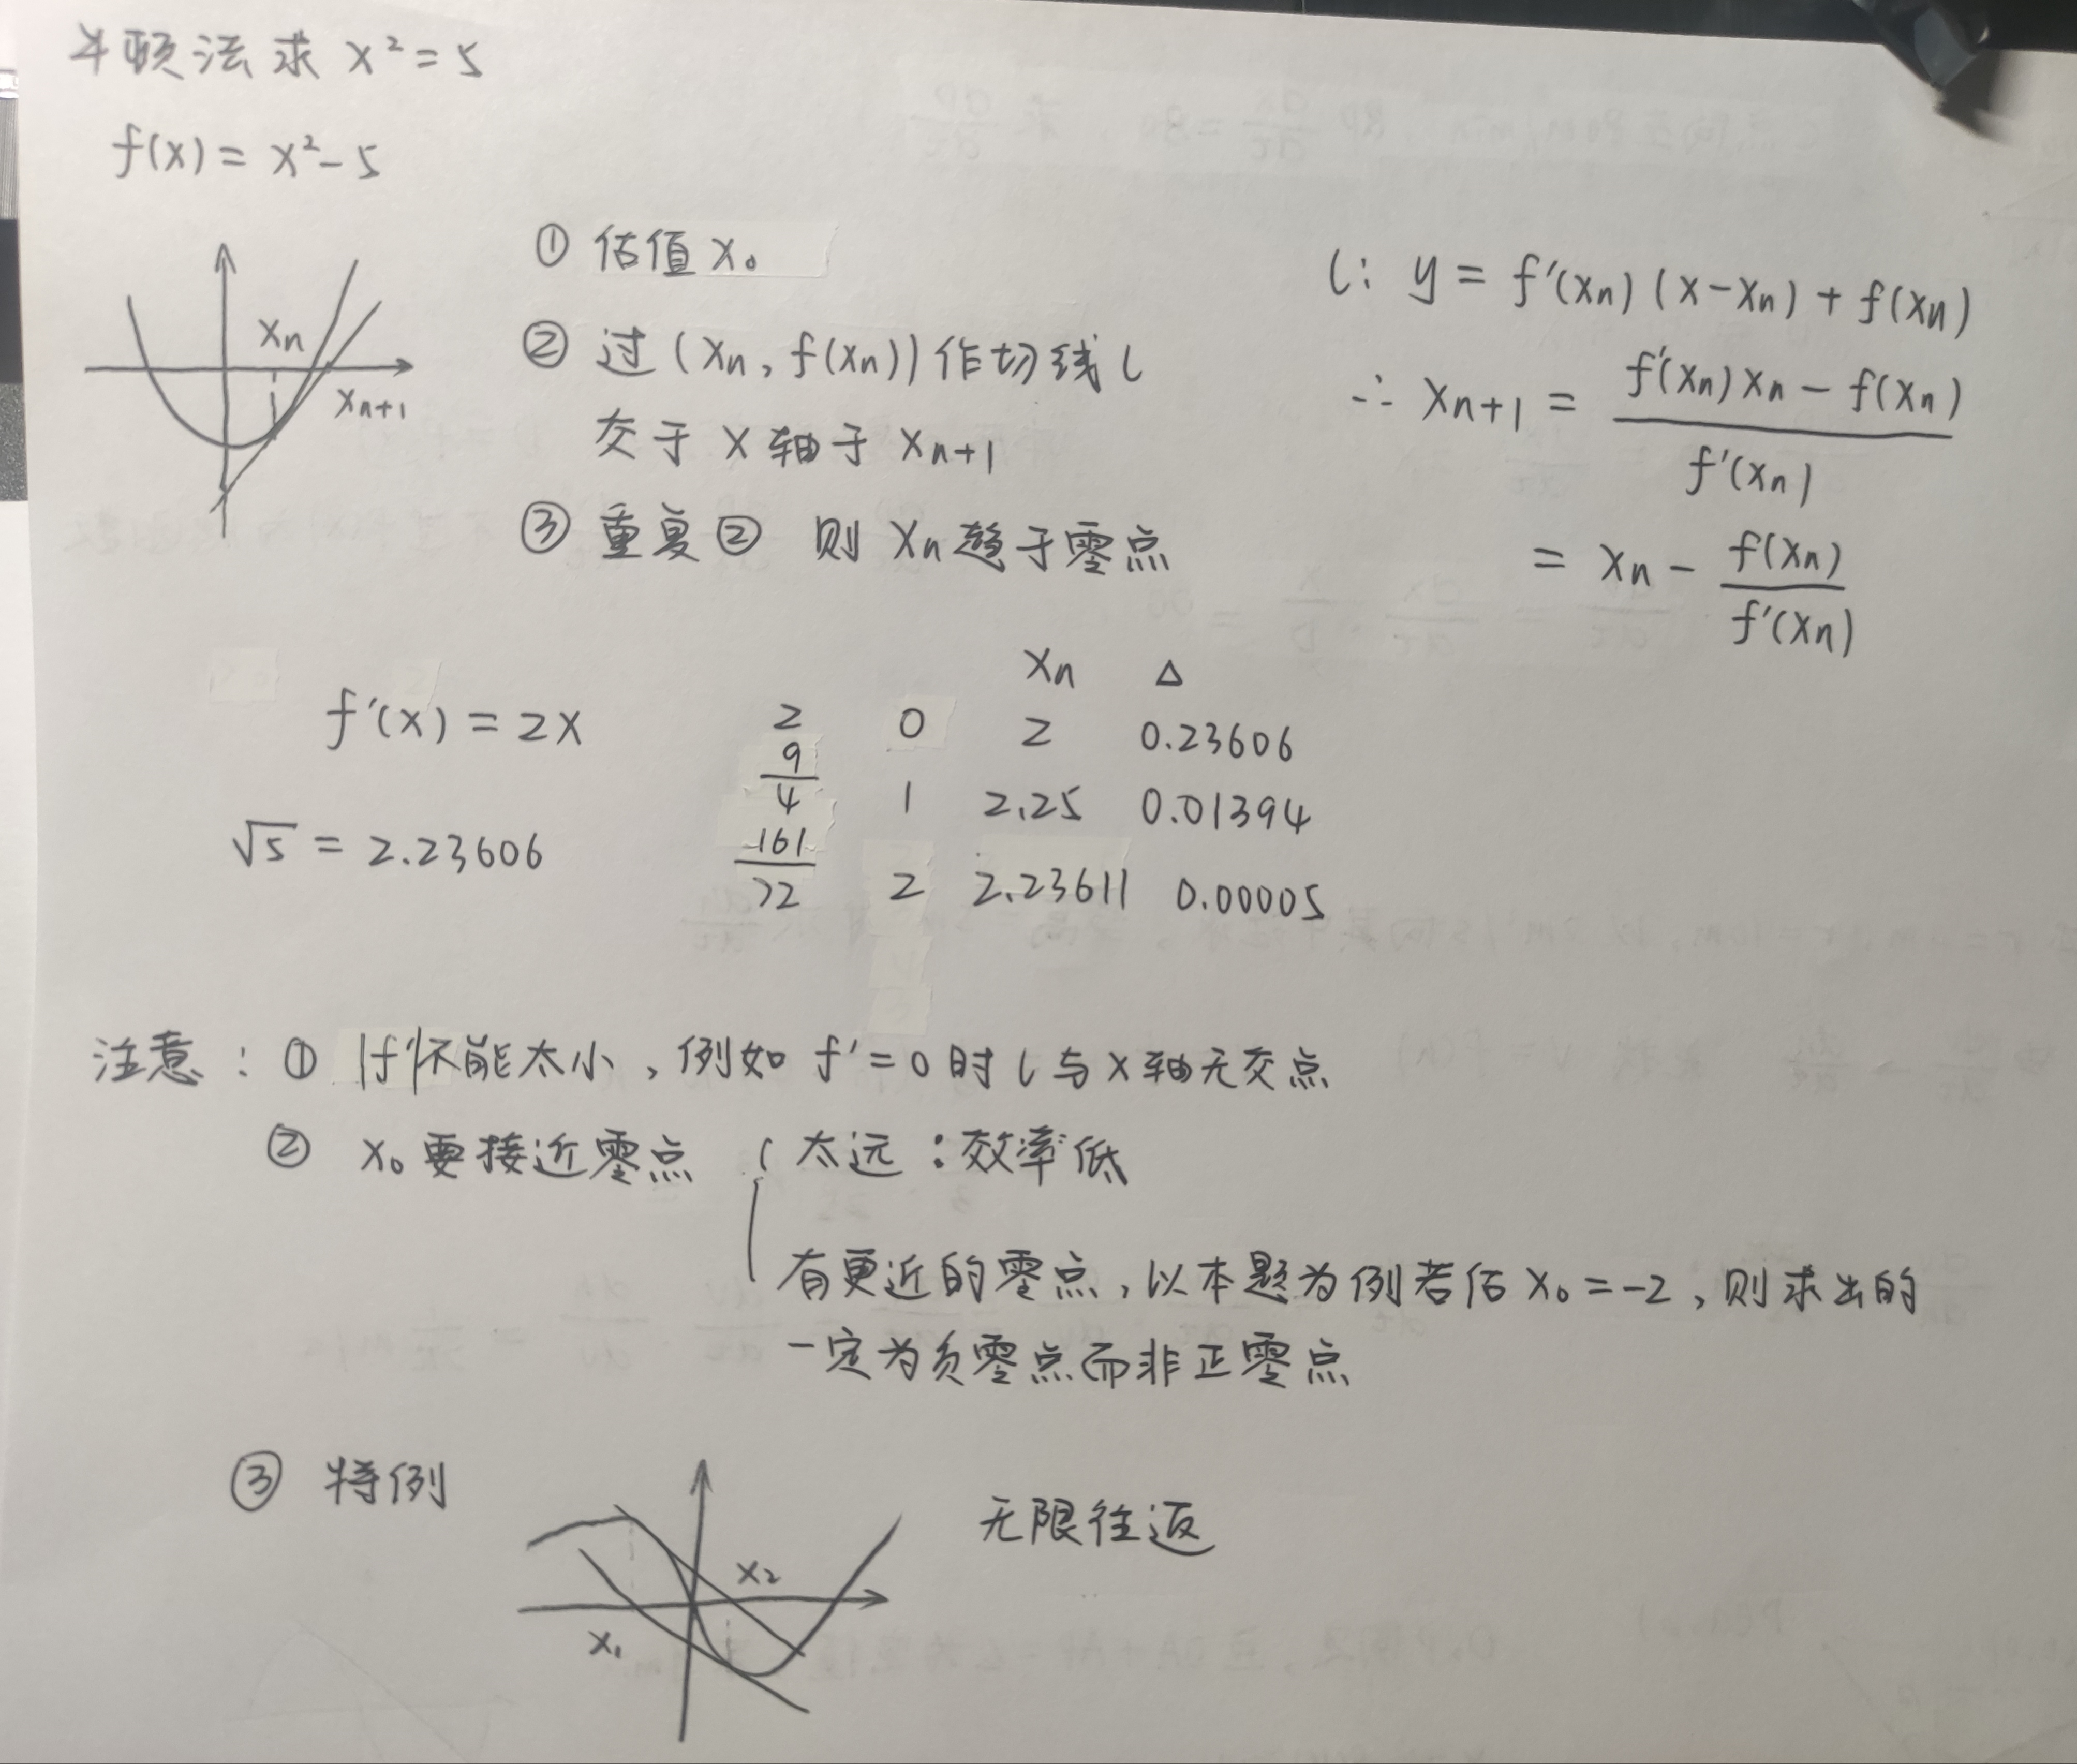 牛顿法求 x² = 5
f(x) = x² - 5
x_n
x_{n+1}
① 估值 x₀
② 过 (x_n, f(x_n)) 作切线 l
交于 x 轴于 x_{n+1}
③ 重复② 则 x_n 趋于零点
l: y = f'(x_n)(x - x_n) + f(x_n)
∴ x_{n+1} = \frac{f'(x_n)x_n - f(x_n)}{f'(x_n)}
= x_n - \frac{f(x_n)}{f'(x_n)}
f'(x) = 2x
√5 = 2.23606
x_n Δ
2 0 2 0.23606
9/4 1 2.25 0.01394
161/72 2 2.23611 0.00005
注意：① |f'|不能太小，例如 f' = 0 时 l 与 x 轴无交点
② x₀ 要接近零点 { 太远：效率低
有更近的零点，以本题为例若估 x₀ = -2，则求出的
一定为负零点而非正零点
③ 特例
x₁
x₂
无限往返